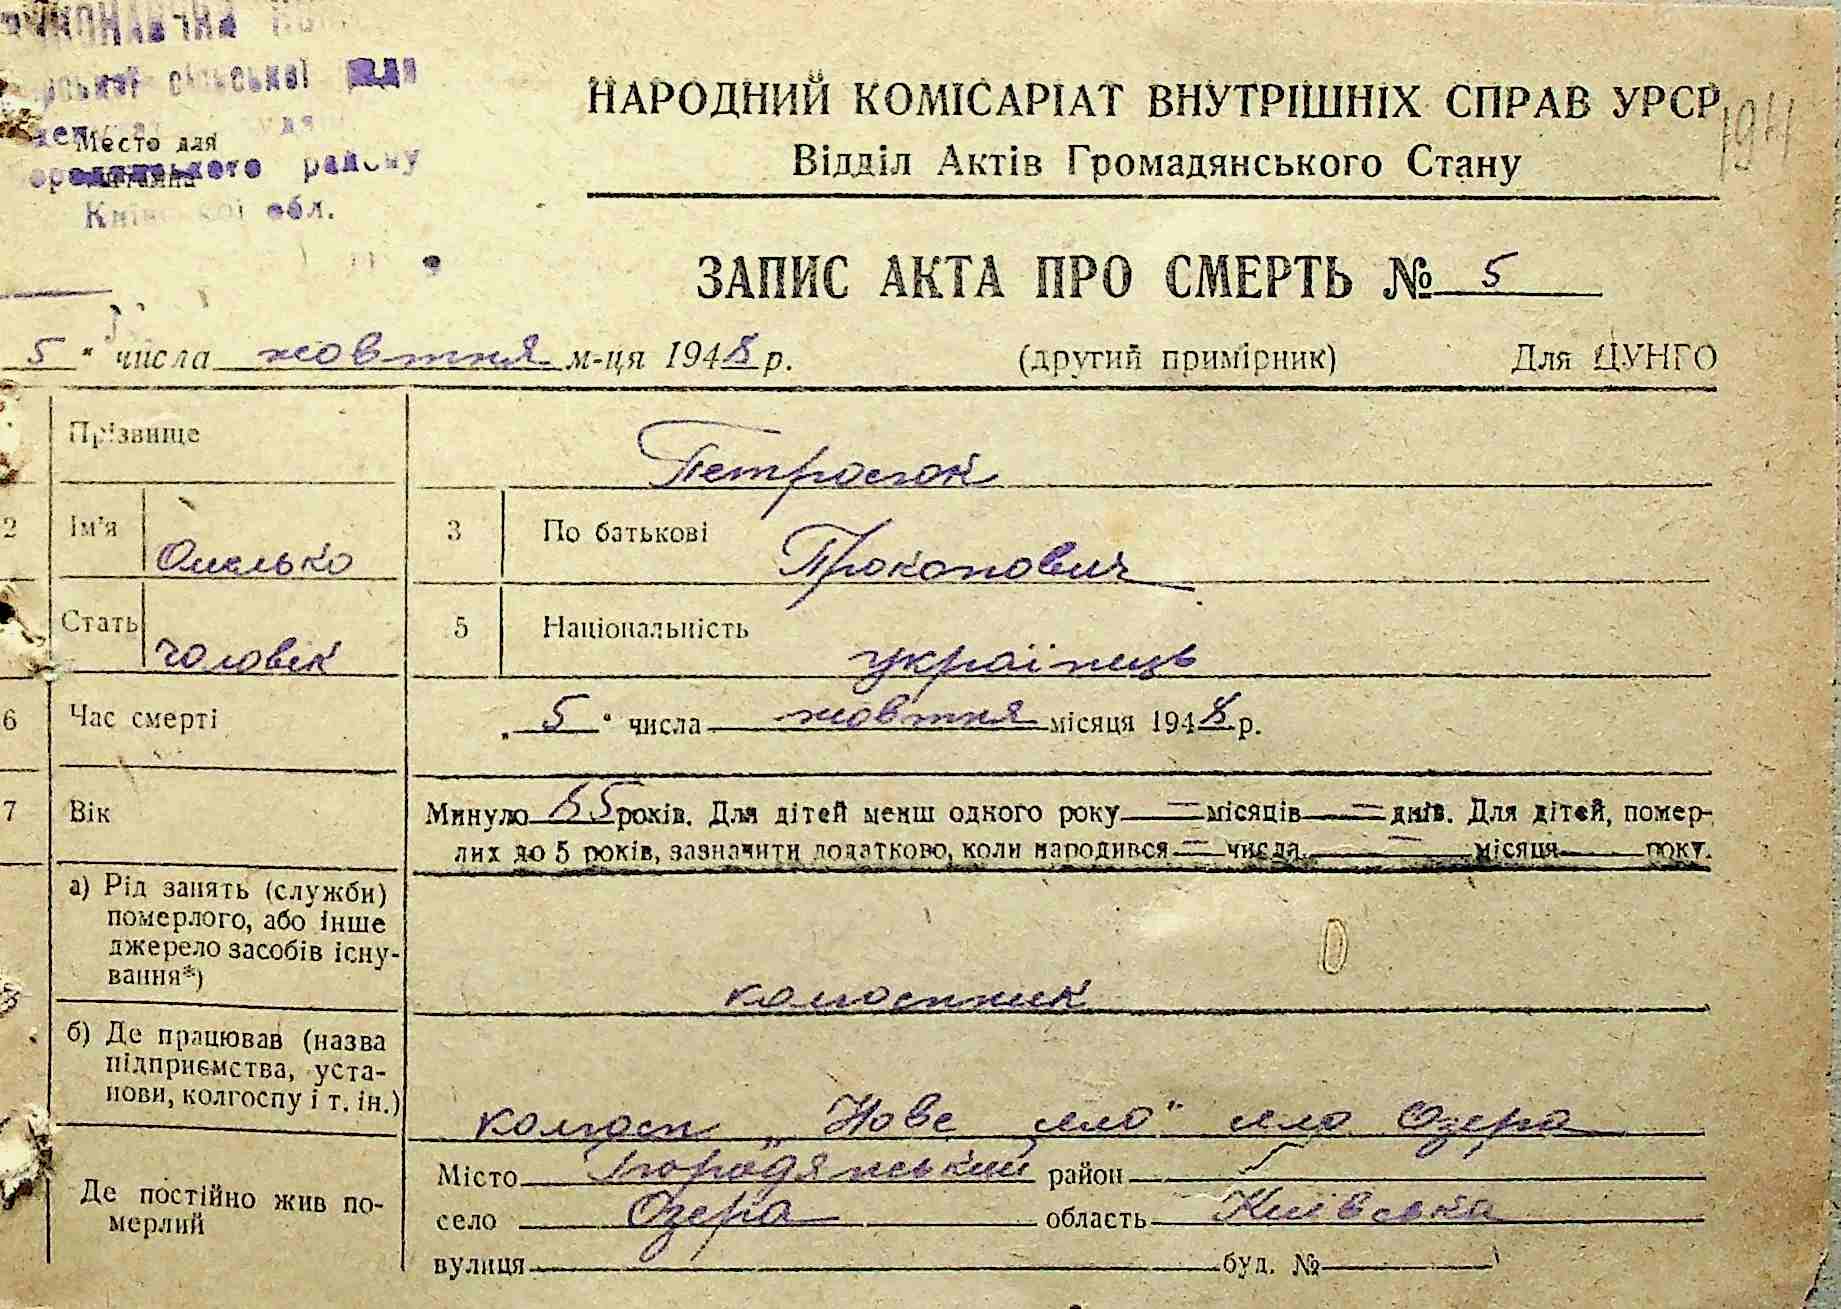 сільської ради
Место для
району
обл.
НАРОДНИЙ КОМІСАРІАТ ВНУТРІШНІХ СПРАВ УРСР
194
Відділ Актів Громадянського Стану
ЗАПИС АКТА ПРО СМЕРТЬ № 5
5 " числа жовтня м-ця 1948 р. (другий примірник) Для ЦУНГО
Прізвище
2 Ім'я Омелько 3 По батькові Прокопович
Стать чоловік 5 Національність українець
6 Час смерті „ 5 " числа жовтня місяця 1948 р.
7 Вік Минуло років. Для дітей менш одного року — місяців — днів. Для дітей, помер-
лих до 5 років, зазначити додатково, коли народився — числа — місяця року.
а) Рід занять (служби)
померлого, або інше
джерело засобів існу-
вання*)
колгоспник
б) Де працював (назва
підприємства, уста-
нови, колгоспу і т. ін.)
колгосп „Нове село" село Озера
Де постійно жив по-
мерлий
Місто Бородянський район
село Озера область Київська
вулиця буд. №